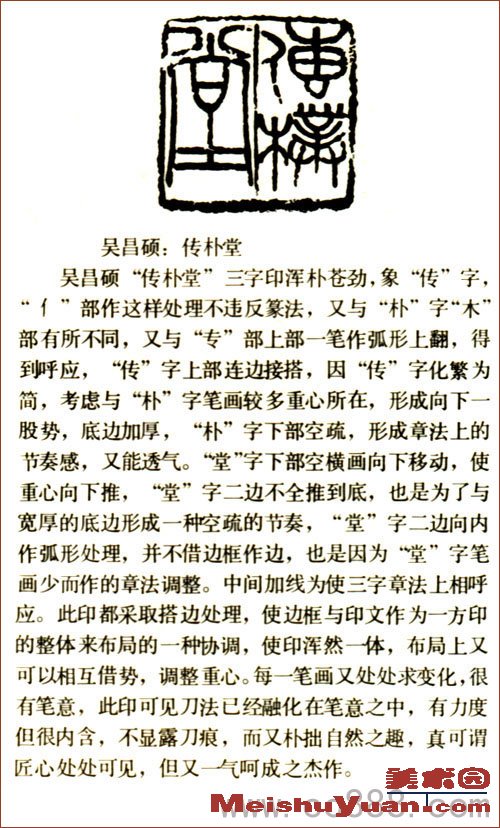 傳樸
堂
吴昌硕：传朴堂
吴昌硕“传朴堂”三字印浑朴苍劲，象“传”字，
“亻”部作这样处理不违反篆法，又与“朴”字“木”
部有所不同，又与“专”部上部一笔作弧形上翻，得
到呼应，“传”字上部连边接搭，因“传”字化繁为
简，考虑与“朴”字笔画较多重心所在，形成向下一
股势，底边加厚，“朴”字下部空疏，形成章法上的
节奏感，又能透气。“堂”字下部空横画向下移动，使
重心向下推，“堂”字二边不全推到底，也是为了与
宽厚的底边形成一种空疏的节奏，“堂”字二边向内
作弧形处理，并不借边框作边，也是因为“堂”字笔
画少而作的章法调整。中间加线为使三字章法上相呼
应。此印都采取搭边处理，使边框与印文作为一方印
的整体来布局的一种协调，使印浑然一体，布局上又
可以相互借势，调整重心。每一笔画又处处求变化，很
有笔意，此印可见刀法已经融化在笔意之中，有力度
但很内含，不显露刀痕，而又朴拙自然之趣，真可谓
匠心处处可见，但又一气呵成之杰作。
美术园
MeishuYuan.com